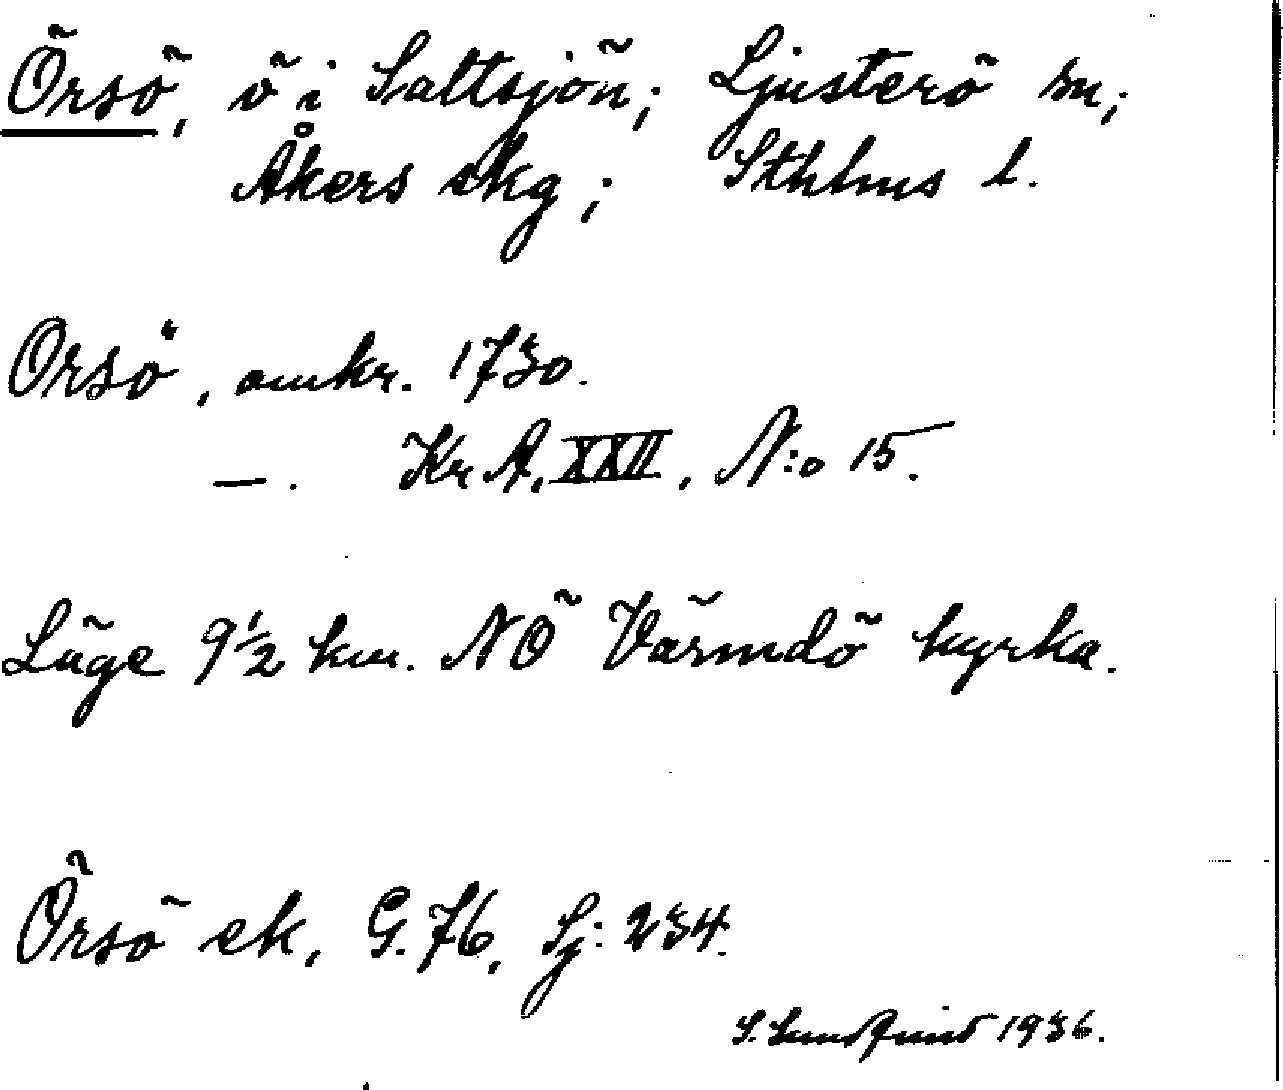 Örsö, ö i Saltsjön; Ljusterö sn;
Åkers skg; Sthlms l.
Orsö, omkr. 1730.
—. Kr A, XXII, N:o 15.
Läge 9½ km. NÖ Värmdö kyrka.
Örsö ek, G. 76, Sj: 234.
S. 1936.